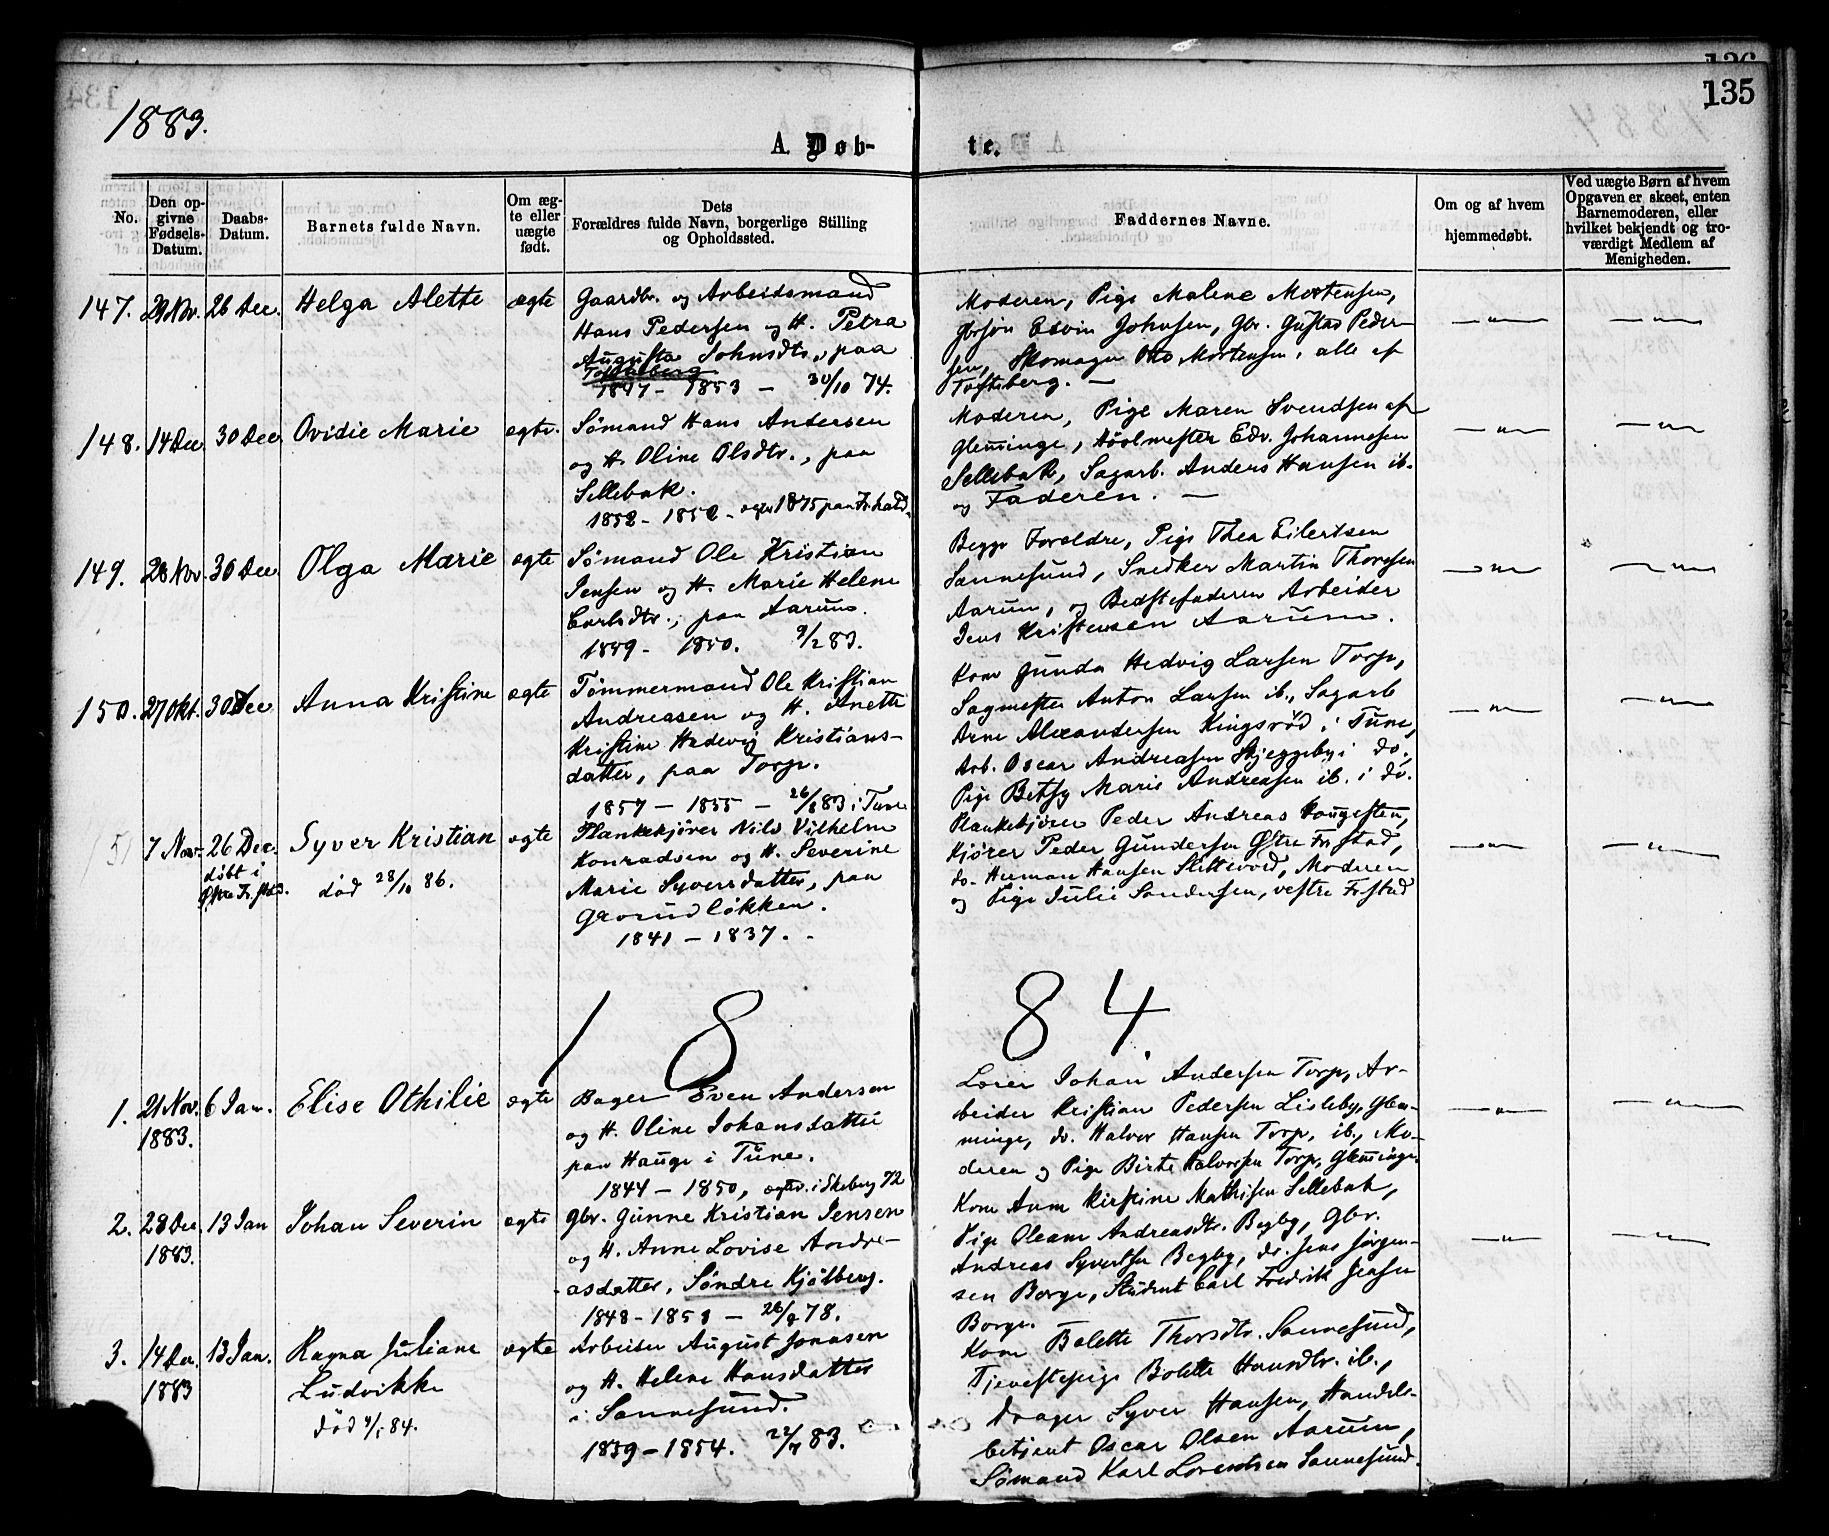 135
1883.
A. Døb-
te.
No.
Den op-
givne
Fødsels-
Datum.
Daabs-
Datum.
Barnets fulde Navn.
Om æg-
te eller
uægte
født.
Dets
Forældres fulde Navn, borgerlige Stilling
og Opholdssted.
Faddernes Navne.
Om og af hvem
hjemmedøbt.
Ved uægte Børn af hvem
Opgaven er skeet, enten
Barnemoderen, eller
hvilket bekjendt og tro-
værdigt Medlem af
Menigheden.
147. 29 Nov. 26 Dec. Helga Alette ægte
Gaardbr. og Arbeidsmand
Hans Pedersen og H. Petra
Augusta Johnsdtr., paa
Tofteberg
1847 - 1853 - 30/10 74.
Moderen, Pige Malene Mortensen,
Gbrsøn Edvin Johnsen, Gbr. Gustav Peder-
sen, Skomager Otto Mortensen, alle af
Tofteberg. —
—„— —„—
148. 14 Dec. 30 Dec Ovidie Marie ægte.
Sømand Hans Andersen
og H. Oline Olsdtr., paa
Sellebak.
1852 - 1852 - 1875 paa Fr.hald.
Moderen, Pige Maren Svendsen af
Glemminge, Edv. Johannesen
Sellebak, Sagarb. Anders Hansen ib.
og Faderen. —
—„— —„—
149. 28 Nov. 30 Dec Olga Marie ægte
Sømand Ole Kristian
Jensen og H. Marie Helene
Carlsdtr., paa Aarum.
1859 - 1850. 9/2 83.
Begge Forældre, Pige Thea Eilertsen
Sannesund, Snedker Martin Thoresen
Aarum, og Bedstefaderen Arbeider
Jens Kristensen Aarum.
—„— —„—
150. 27 Okt. 30 Dec Anna Kristine ægte
Tømmermand Ole Kristian
Andreasen og H. Anette
Kristine Hedevig Kristians-
datter, paa Torp.
1857 - 1855 - 83 i Tune
Kone Gunda Hedvig Larsen Torp,
Sagmester Anton Larsen ib., Sagarb
Arne Alexandersen Kingsrød i Tune,
Arb. Oscar Andreasen Skjeggeby i do,
Pige Betsy Marie Andreasen ib. i do.
—„— —„—
151 7 Nov. 26 Dec. Syver Kristian ægte
døbt i
Østre Fr.stad.
død 28/10 86.
Plankekjører Nils Vilhelm
Konradsen og H. Severine
Marie Syversdatter, paa
Grorudløkken.
1841 - 1837.
Plankekjører Peder Andreas Haugesten,
Kjører Peder Gundersen Østre Fr.stad,
do. Herman Hansen Slettevold, Moderen
og Pige Julie Sandersen, vestre Fr.stad
—„— —„—
1884
1. 21 Nov. 6 Jan. Elise Othilie ægte
1883.
Bager Even Andersen
og H. Oline Johansdatter
paa Hauge i Tune.
1844 - 1850, ægtev. i Skeberg 72
Johan Andersen Torp, Ar-
beider Kristian Pedersen Lisleby, Glem-
minge, do. Halvor Hansen Torp, ib., Mo-
deren og Pige Birte Halvorsen Torp, Glemminge.
—„— —„—
2. 28 Dec. 13 Jan Johan Severin ægte
1883.
Gbr. Gunne Kristian Jensen
og H. Anne Lovise Andre-
asdatter, Søndre Kjølberg.
1848 - 1853 - 78.
Kone Anne Kirstine Mathisen Sellebak,
Pige Oleane Andreasdtr. Begby, Gbr.
Andreas Syvertsen Begby, do. Jens Jørgen-
sen Borge, Student Carl Fredrik Jensen
Borge.
—„— —„—
3. 14 Dec. 13 Jan. Ragna Juliane ægte
1883 Ludvikke
død 9/5 84.
Arbeider August Jonasen
og H. Helene Hansdatter
i Sannesund.
1859 - 1854. 22/7 83.
Kone Bolette Thorsdtr. Sannesund,
Tjenestepige Bolette Hansdtr. ib.,
Drager Syver Hansen, Handels-
betjent Oscar Olsen Aarum,
Sømand Karl Lorentsen Sannesund.